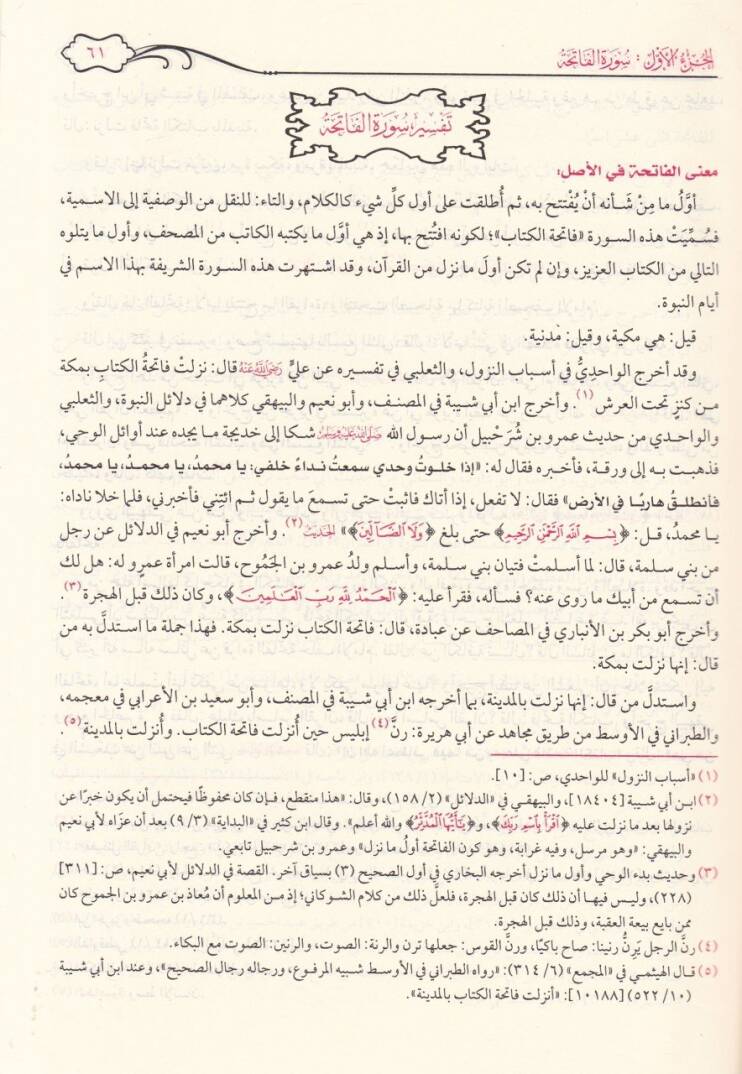 الجزء الأول : سورة الفاتحة
٦١
تفسير سورة الفاتحة
معنى الفاتحة في الأصل:
أوَّلُ ما مِنْ شَأنه أنْ يُفْتتح به، ثم أُطلقت على أول كلِّ شيء كالكلام، والتاء: للنقل من الوصفية إلى الاسمية،
فسُمِّيَتْ هذه السورة «فاتحة الكتاب»؛ لكونه افتُتح بها، إذ هي أوَّل ما يكتبه الكاتب من المصحف، وأول ما يتلوه
التالي من الكتاب العزيز، وإن لم تكن أولَ ما نزل من القرآن، وقد اشتهرت هذه السورة الشريفة بهذا الاسم في
أيام النبوة.
قيل: هي مكية، وقيل: مدنية.
وقد أخرج الواحديُّ في أسباب النزول، والثعلبي في تفسيره عن عليٍّ رضي الله عنه قال: نزلتْ فاتحةُ الكتاب بمكة
من كنزٍ تحت العرش(١). وأخرج ابن أبي شيبة في المصنف، وأبو نعيم والبيهقي كلاهما في دلائل النبوة، والثعلبي
والواحدي من حديث عمرو بن شُرَحْبيل أن رسول الله صلى الله عليه وسلم شكا إلى خديجة ما يجده عند أوائل الوحي،
فذهبت به إلى ورقة، فأخبره فقال له: «إذا خلوتُ وحدي سمعتُ نداءً خلفي: يا محمدُ، يا محمدُ، يا محمدُ،
فأنطلقُ هاربًا في الأرض» فقال: لا تفعل، إذا أتاك فاثبتْ حتى تسمعَ ما يقول ثم ائتِني فأخبرني، فلما خلا ناداه:
يا محمدُ، قل: ﴿بِسْمِ اللَّهِ الرَّحْمَٰنِ الرَّحِيمِ﴾ حتى بلغ ﴿وَلَا الضَّالِّينَ﴾» الحديث(٢). وأخرج أبو نعيم في الدلائل عن رجل
من بني سلمة، قال: لما أسلمتْ فتيان بني سلمة، وأسلم ولدُ عمرو بن الجَمُوح، قالت امرأة عمرٍو له: هل لك
أن تسمع من أبيك ما روى عنه؟ فسأله، فقرأ عليه: ﴿الْحَمْدُ لِلَّهِ رَبِّ الْعَالَمِينَ﴾، وكان ذلك قبل الهجرة(٣).
وأخرج أبو بكر بن الأنباري في المصاحف عن عبادة، قال: فاتحة الكتاب نزلت بمكة. فهذا جملة ما استدلَّ به من
قال: إنها نزلت بمكة.
واستدلَّ من قال: إنها نزلت بالمدينة، بما أخرجه ابن أبي شيبة في المصنف، وأبو سعيد بن الأعرابي في معجمه،
والطبراني في الأوسط من طريق مجاهد عن أبي هريرة: رنَّ(٤) إبليس حين أُنزلت فاتحة الكتاب. وأُنزلت بالمدينة(٥).
(١) «أسباب النزول» للواحدي، ص: [١٠].
(٢) ابن أبي شيبة [١٨٤٠٤]، والبيهقي في «الدلائل» (٢/ ١٥٨)، وقال: «هذا منقطع، فإن كان محفوظًا فيحتمل أن يكون خبرًا عن
نزولها بعد ما نزلت عليه ﴿اقْرَأْ بِاسْمِ رَبِّكَ﴾، و﴿يَا أَيُّهَا الْمُدَّثِّرُ﴾ والله أعلم». وقال ابن كثير في «البداية» (٣/ ٩) بعد أن عزَاه لأبي نعيم
والبيهقي: «وهو مرسل، وفيه غرابة، وهو كون الفاتحة أولُ ما نزل» وعمرو بن شرحبيل تابعي.
(٣) وحديث بدء الوحي وأول ما نزل أخرجه البخاري في أول الصحيح (٣) بسياق آخر. القصة في الدلائل لأبي نعيم، ص: [٣١١]
(٢٢٨)، وليس فيها أن ذلك كان قبل الهجرة، فلعلَّ ذلك من كلام الشوكاني؛ إذ من المعلوم أن مُعاذ بن عمرو بن الجموح كان
ممن بايع بيعة العقبة، وذلك قبل الهجرة.
(٤) رنَّ الرجل يَرِنُّ رنينا: صاح باكيًا، ورنَّ القوس: جعلها ترن والرنة: الصوت، والرنين: الصوت مع البكاء.
(٥) قال الهيثمي في «المجمع» (٦/ ٣١٤): «رواه الطبراني في الأوسط شبيه المرفوع، ورجاله رجال الصحيح»، وعند ابن أبي شيبة
(١٠/ ٥٢٢) [١٠١٨٨]: «أنزلت فاتحة الكتاب بالمدينة».